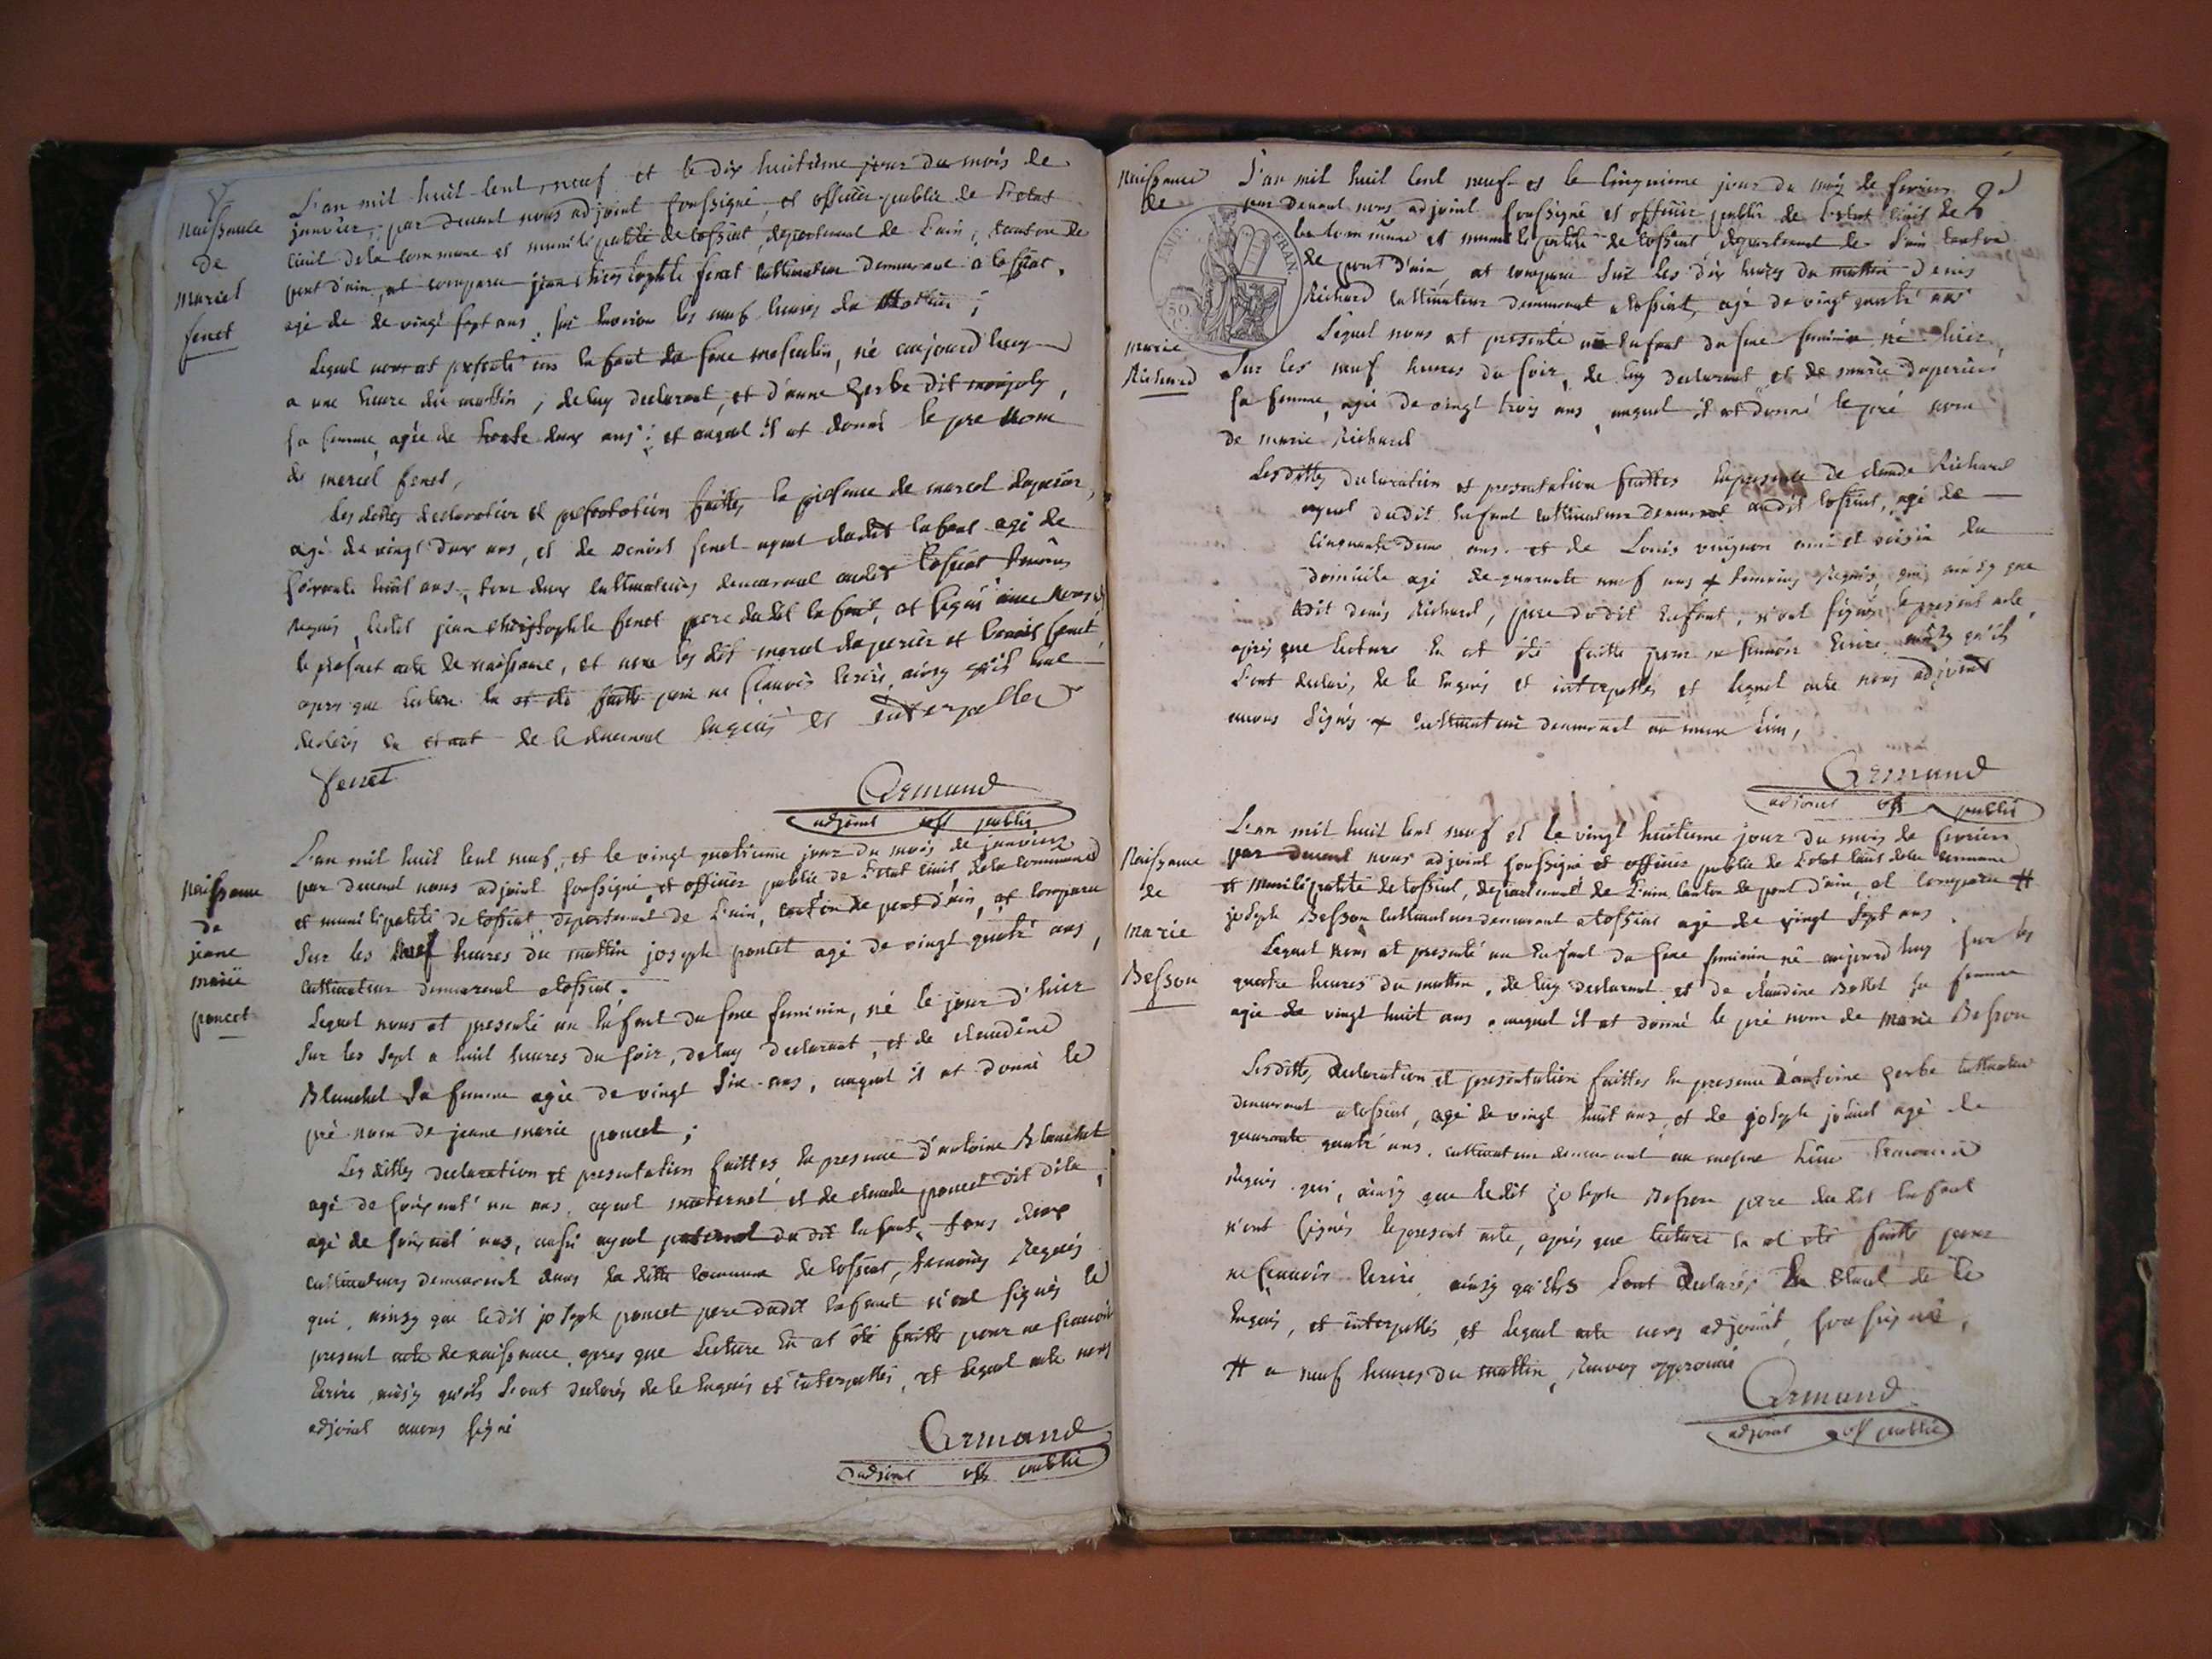 naissance
de
marcel
fenet
L'an mil huit cent neuf et le dix huitième jour du mois de
janvier, par devant nous adjoint soussigné, et officier public de l'etat
civil de la commune et municipalité de tossiat, departement de l'ain, canton de
pont d'ain, at comparu jean christophle fenet cultivateur demeurant a tossiat,
agé de de vingt sept ans, sur les neuf heures du mattin;
Lequel nous at presenté un enfant du sexe masculin, né aujourd'huy
a une heure du mattin, de luy declarant, et d'anne gerbe dit
sa femme, agée de trente deux ans; et auquel il at donné le pre nom
de marcel fenet,
Les dittes declaration et presentation faittes en presence de marcel duperier,
agé de vingt deux ans, et de benoit fenet ayeul dudit enfant agé de
soixante huit ans, tous deux cultivateurs demeurant audit tossiat temoins
requis, ledit jean christophle fenet pere dudit enfant, at signé avec nous
le present acte de naissance, et non les dits marcel duperier et benoit fenet
apres que lecture en at été faitte pour ne sçauvoir ecrire, ainsy qu'ils l'ont
declaré de le enquis et interpellés
fenet
Armand
adjoint off public
naissance
de
jeane
marie
poncet
L'an mil huit cent neuf, et le vingt quatrieme jour du mois de janvier
par devant nous adjoint soussigné et officier public de l'etat civil de la commune
et municipalité de tossiat, departement de l'ain, canton de pont d'ain, at comparu
sur les neuf heures du mattin joseph poncet agé de vingt quatre ans,
cultivateur demeurant a tossiat;
Lequel nous at presenté un enfant du sexe feminin, né le jour d'hier
sur les sept a huit heures du soir, de luy declarant, et de claudine
Blanchet sa femme agée de vingt six ans, auquel il at donné le
pré nom de jeane marie poncet;
Les dittes declaration et presentation faittes en presence d'antoine Blanchet
agé de soixant' un ans, ayeul maternel, et de claude poncet dit
agé de soixant' ans, aussi ayeul paternel du dit enfant, tous deux
cultivateurs demeurant dans la ditte commune de tossiat, temoins requis
qui, ainsy que ledit joseph poncet pere dudit enfant n'ont signés le
present acte de naissance, apres que lecture en at été faitte pour ne sçauvoir
ecrire, ainsy qu'ils l'ont declarés de le enquis et interpellés, et lequel acte nous
adjoint avons signé
Armand
adjoint off public
naissance
de
marie
Richard
L'an mil huit cent neuf et le cinquieme jour du mois de fevrier
par devant nous adjoint soussigné et officier public de l'etat civil de
la commune et municipalité de tossiat departement de l'ain canton
de pont d'ain, at comparu sur les dix heures du mattin denis
Richard cultivateur demeurant a tossiat, agé de vingt quatre ans
Lequel nous at presenté un enfant du sexe feminin né hier,
sur les neuf heures du soir, de luy declarant et de marie duperier
sa femme, agée de vingt trois ans, auquel il at donné le pré nom
de marie Richard
Les dittes declaration et presentation faittes en presence de claude Richard
ayeul dudit enfant cultivateur demeurant audit tossiat, agé de
cinquante deux ans et de Louis ami et voisin du
domicile agé de quarante neuf ans temoins requis, qui, ainsy que
ledit denis Richard, pere dudit enfant, n'ont signés le present acte
après que lecture en at été faitte pour ne sçauvoir ecrire ainsy qu'ils
l'ont declaré, de le enquis et interpellés et lequel acte nous adjoint
avons signés cultivateur demeurant au meme lieu,
Armand
adjoint off public
EMP. FRAN.
50
naissance
de
marie
Besson
L'an mil huit cent neuf et le vingt huitieme jour du mois de fevrier
par devant nous adjoint soussigné et officier public de l'etat civil de la commune
et municipalité de tossiat, departement de l'ain canton de pont d'ain, at comparu #
joseph Besson cultivateur demeurant a tossiat agé de vingt sept ans
Lequel nous at presenté un enfant du sexe feminin né aujourd'huy sur les
quatre heures du mattin, de luy declarant et de claudine Bollet sa femme
agée de vingt huit ans auquel il at donné le pré nom de marie Besson
Les dittes declaration et presentation faittes en presence d'antoine gerbe cultivateur
demeurant a tossiat, agé de vingt huit ans, et de joseph agé de
quarante quatre ans, cultivateur demeurant au mesme lieu temoins
requis qui, ainsy que ledit joseph Besson pere du dit enfant
n'ont signés le present acte, après que lecture en at été faitte pour
ne sçauvoir ecrire, ainsy qu'ils l'ont declarés, de le
enquis, et interpellés et lequel acte nous adjoint soussigné,
# a neuf heures du mattin, renvoy approuvé
Armand
adjoint off public